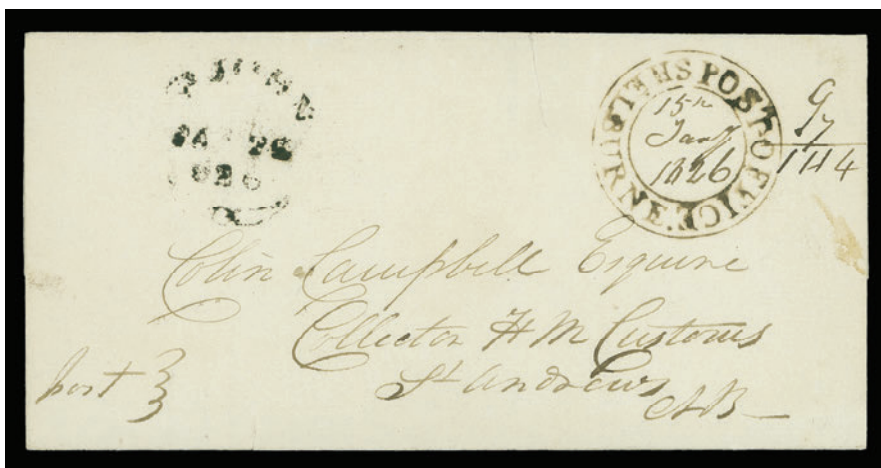 JOHN
JA
826
SHELBURNE POST OFFICE
15th
Jany
1826
9
7
1/4
Colin Campbell Esquire
Collector H M Customs
St Andrews
NB
post